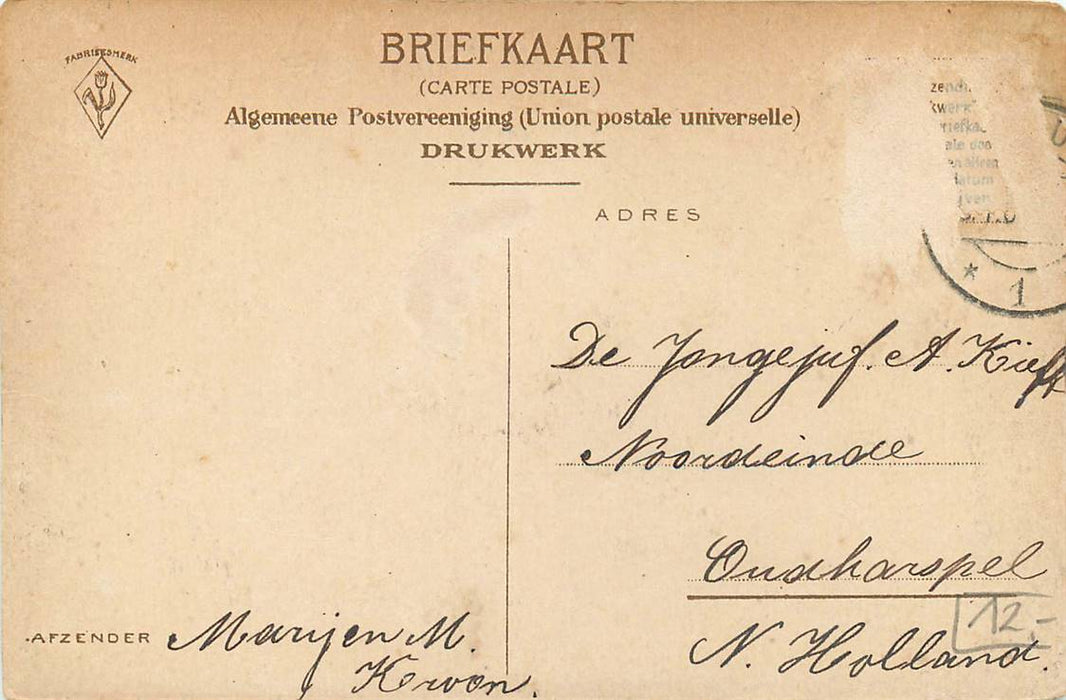 FABRIEKSMERK
BRIEFKAART
(CARTE POSTALE)
Algemeene Postvereeniging (Union postale universelle)
DRUKWERK
ADRES
1
De Jongejuf. A. Kieft
Noordeinde
Oudkarspel
N. Holland.
12,-
AFZENDER Marijen M.
Kroon.